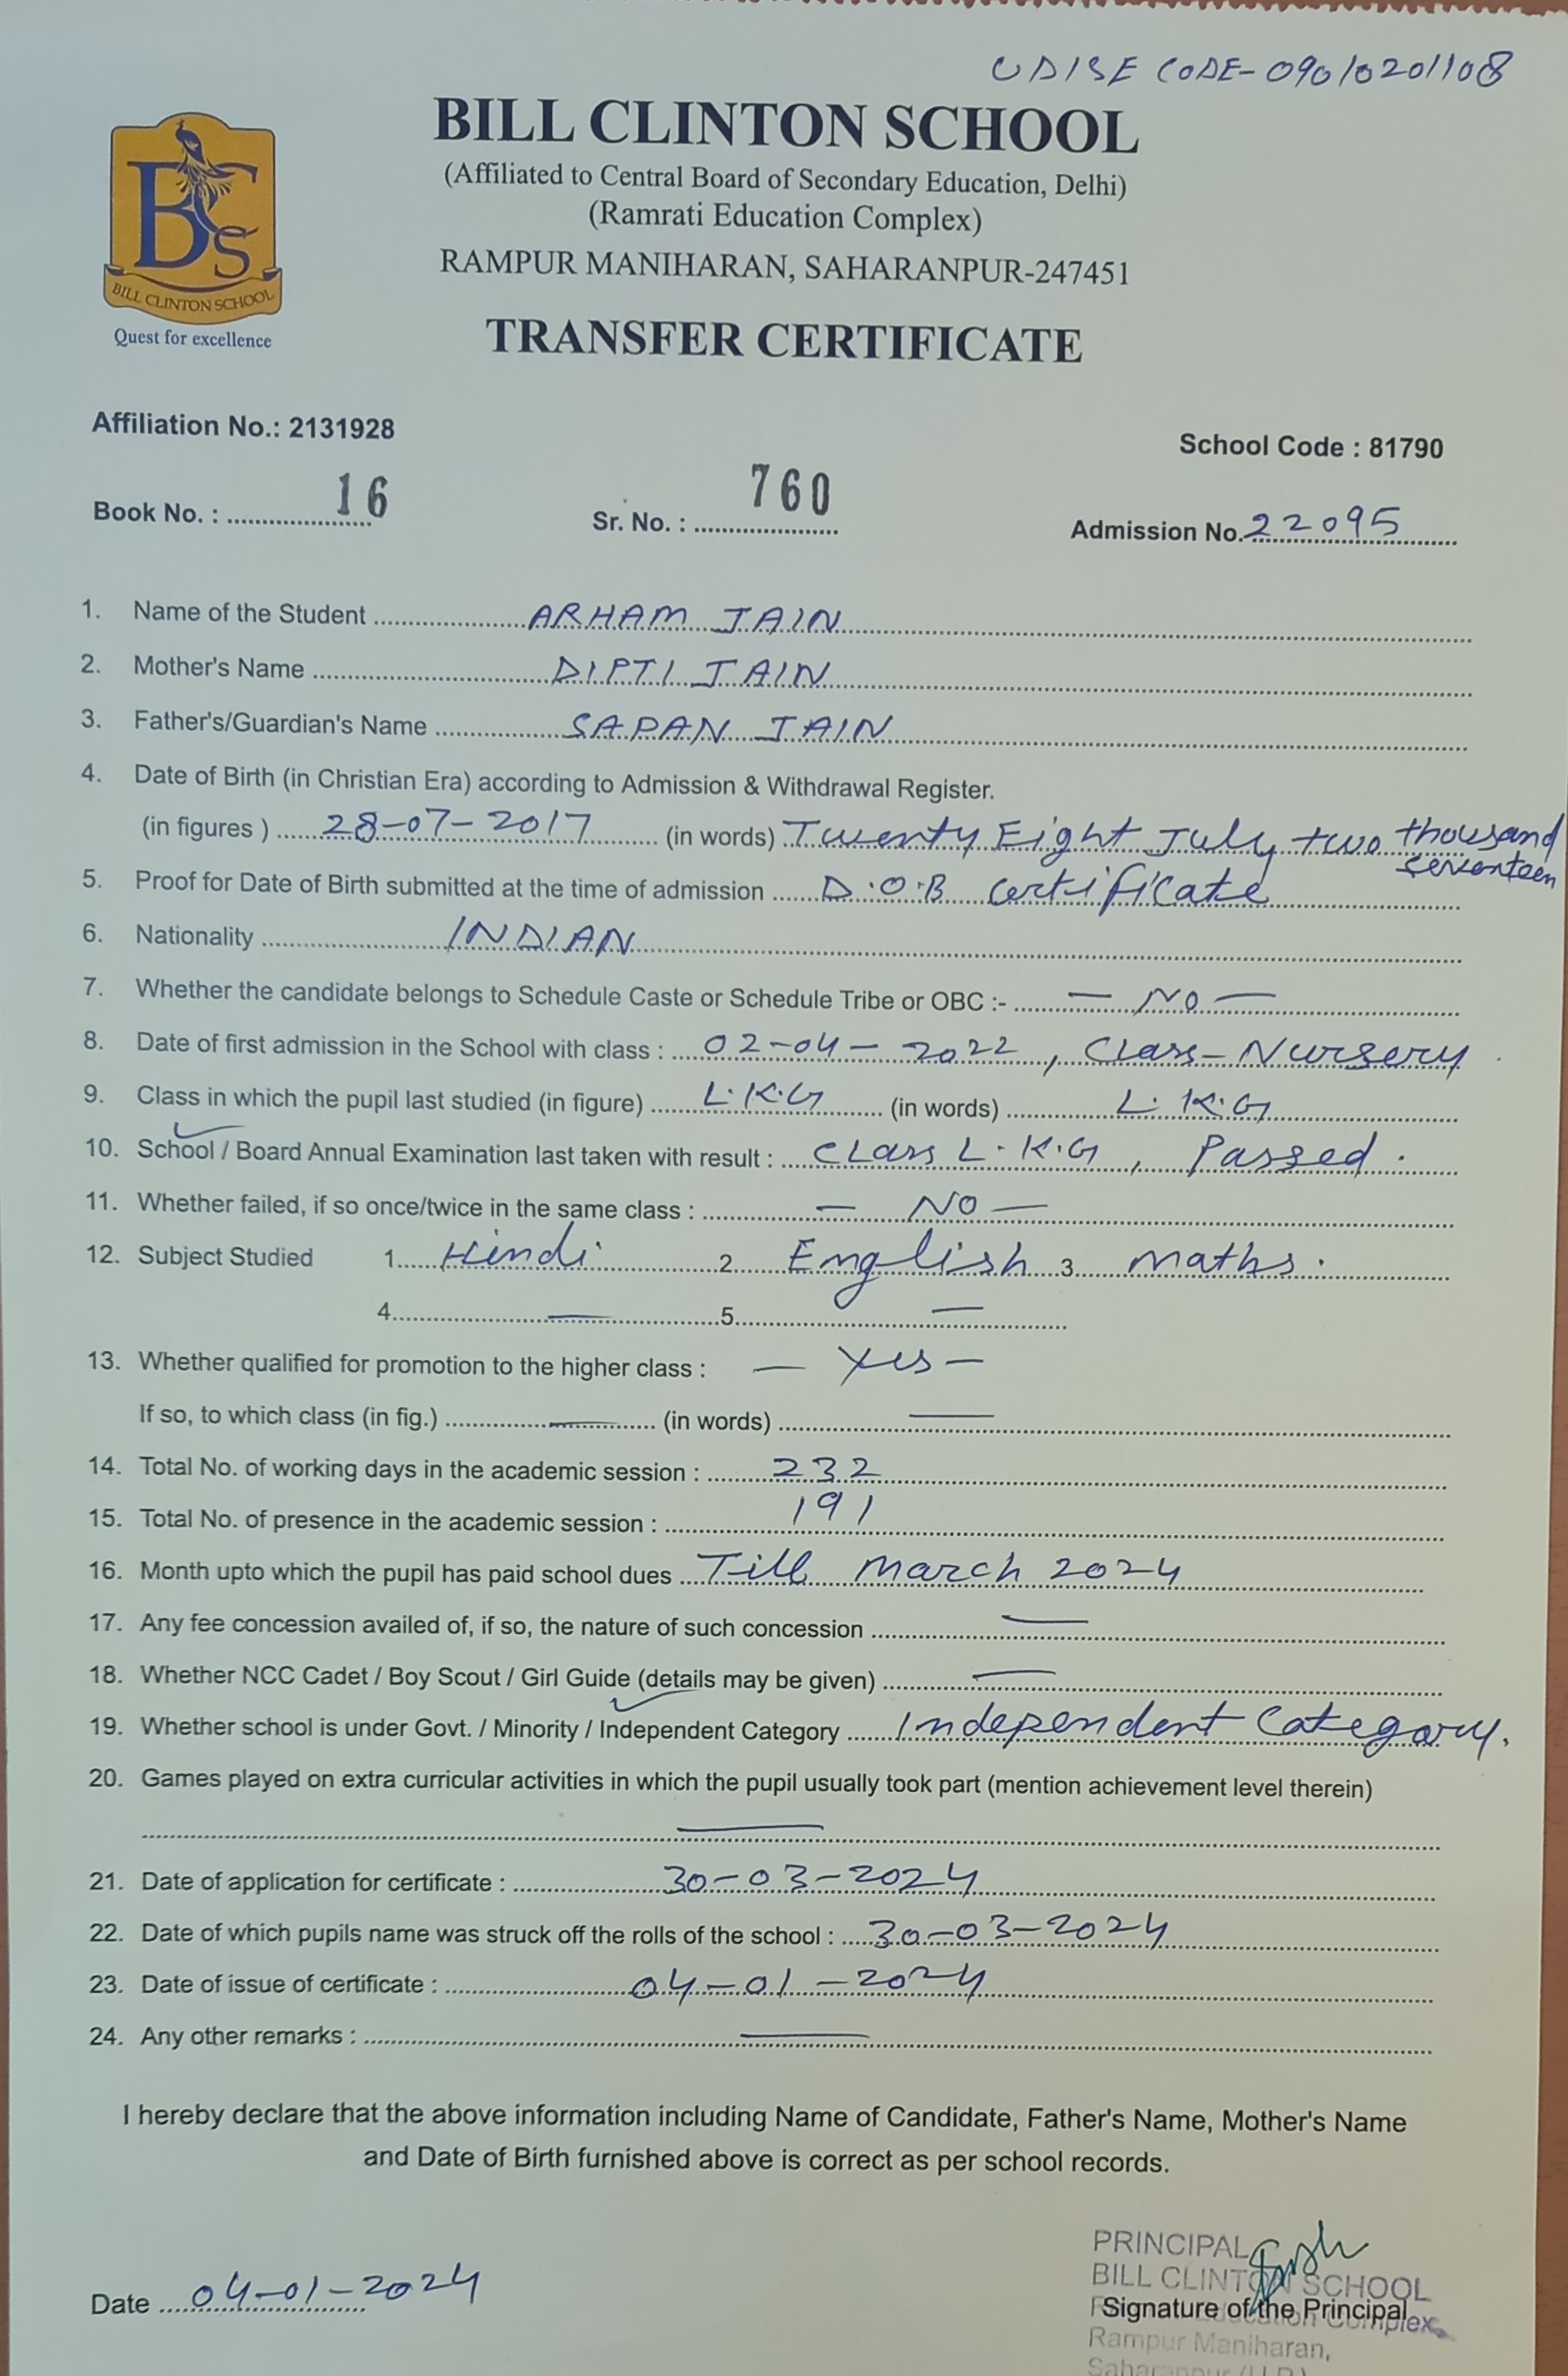 UDISE CODE-09010201108
BILL CLINTON SCHOOL
(Affiliated to Central Board of Secondary Education, Delhi)
(Ramrati Education Complex)
RAMPUR MANIHARAN, SAHARANPUR-247451
BCS
BILL CLINTON SCHOOL
Quest for excellence
TRANSFER CERTIFICATE
Affiliation No.: 2131928
School Code : 81790
Book No. : 16 Sr. No. : 760 Admission No. 22095
1. Name of the Student ARHAM JAIN
2. Mother's Name DIPTI JAIN
3. Father's/Guardian's Name SAPAN JAIN
4. Date of Birth (in Christian Era) according to Admission & Withdrawal Register.
(in figures ) 28-07-2017 (in words) Twenty Eight July two thousand
seventeen
5. Proof for Date of Birth submitted at the time of admission D.O.B certificate
6. Nationality INDIAN
7. Whether the candidate belongs to Schedule Caste or Schedule Tribe or OBC :- — NO —
8. Date of first admission in the School with class : 02-04-2022, Class-Nursery
9. Class in which the pupil last studied (in figure) L.K.G (in words) L.K.G
10. School / Board Annual Examination last taken with result : Class L.K.G, Passed.
11. Whether failed, if so once/twice in the same class : — NO —
12. Subject Studied 1. Hindi 2. English 3. maths.
4. — 5. —
13. Whether qualified for promotion to the higher class : — Yes —
If so, to which class (in fig.) — (in words) —
14. Total No. of working days in the academic session : 232
15. Total No. of presence in the academic session : 191
16. Month upto which the pupil has paid school dues Till March 2024
17. Any fee concession availed of, if so, the nature of such concession —
18. Whether NCC Cadet / Boy Scout / Girl Guide (details may be given) —
19. Whether school is under Govt. / Minority / Independent Category Independent Category.
20. Games played on extra curricular activities in which the pupil usually took part (mention achievement level therein)
—
21. Date of application for certificate : 30-03-2024
22. Date of which pupils name was struck off the rolls of the school : 30-03-2024
23. Date of issue of certificate : 04-01-2024
24. Any other remarks : —
I hereby declare that the above information including Name of Candidate, Father's Name, Mother's Name
and Date of Birth furnished above is correct as per school records.
PRINCIPAL
BILL CLINTON SCHOOL
Date 04-01-2024
Signature of the Principal
Complex
Rampur Maniharan,